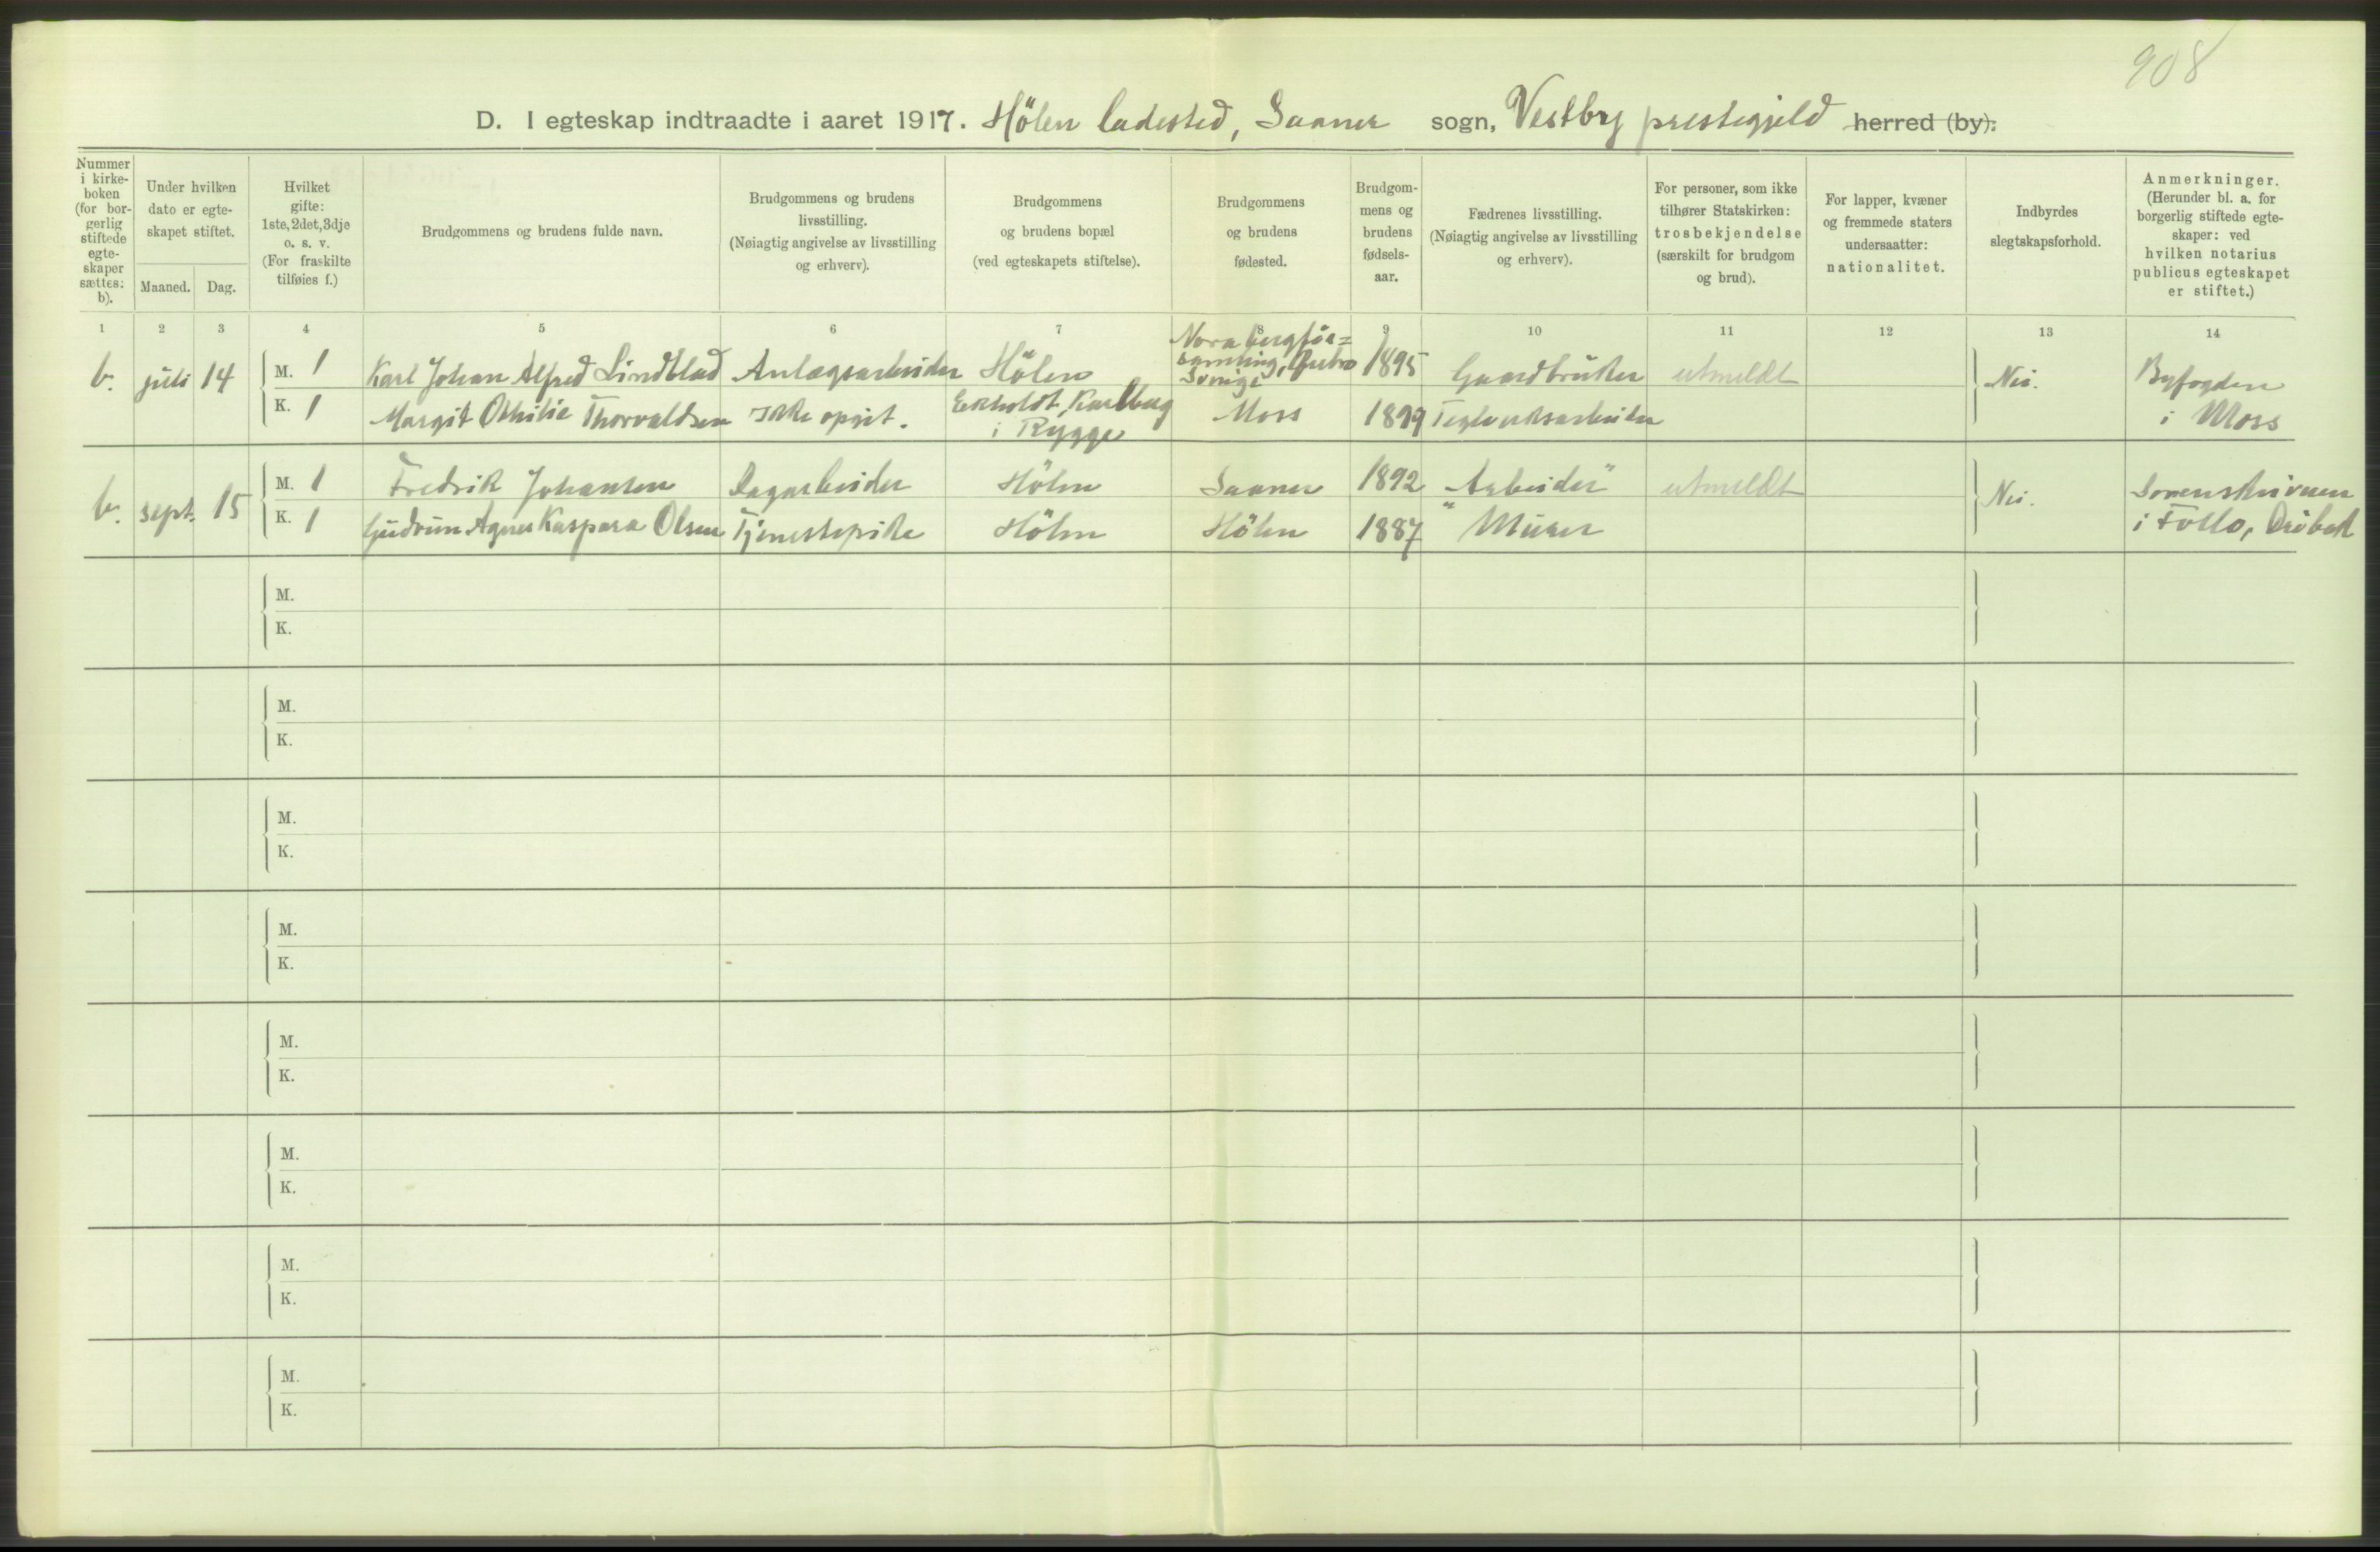 908
D. I egteskap indtraadte i aaret 1917. Hölen ladested, Saaner sogn, Vestby prestegjeld herred (by):
Nummer
i kirke-
boken
(for bor-
gerlig
stiftede
egte-
skaper
sættes:
b).
Under hvilken
dato er egte-
skapet stiftet.
Maaned. Dag.
Hvilket
gifte:
1ste, 2det, 3dje
o. s. v.
(For fraskilte
tilføies f.)
Brudgommens og brudens fulde navn.
Brudgommens og brudens
livsstilling.
(Nøiagtig angivelse av livsstilling
og erhverv).
Brudgommens
og brudens bopæl
(ved egteskapets stiftelse).
Brudgommens
og brudens
fødested.
Brudgom-
mens og
brudens
fødsels-
aar.
Fædrenes livsstilling.
(Nøiagtig angivelse av livsstilling
og erhverv).
For personer, som ikke
tilhører Statskirken:
trosbekjendelse
(særskilt for brudgom
og brud).
For lapper, kvæner
og fremmede staters
undersaatter:
nationalitet.
Indbyrdes
slegtskapsforhold.
Anmerkninger.
(Herunder bl. a. for
borgerlig stiftede egte-
skaper: ved
hvilken notarius
publicus egteskapet
er stiftet.)
1 2 3 4 5 6 7 8 9 10 11 12 13 14
b. juli 14
M. 1 Karl Johan Alfred Lindblad Anlægsarbeider Hölen
Nora bergför=
samling, Örebro
Sverige
1895 Gaardbruker utmeldt
K. 1 Margit Othilie Thorvaldsen Ikke opgit.
Ekholdt, Karlberg
i Rygge
Moss 1899 Teglverksarbeider
Nei.
Byfogden
i Moss
b. sept. 15
M. 1 Fredrik Johansen Dagarbeider Hölen Saaner 1892 "Arbeider" utmeldt
K. 1 Gudrun Agnes Kaspara Olsen Tjenestepike Hölen Hölen 1887 Murer
Nei.
Sorenskriveren
i Follo, Dröbak
M.
K.
M.
K.
M.
K.
M.
K.
M.
K.
M.
K.
M.
K.
M.
K.